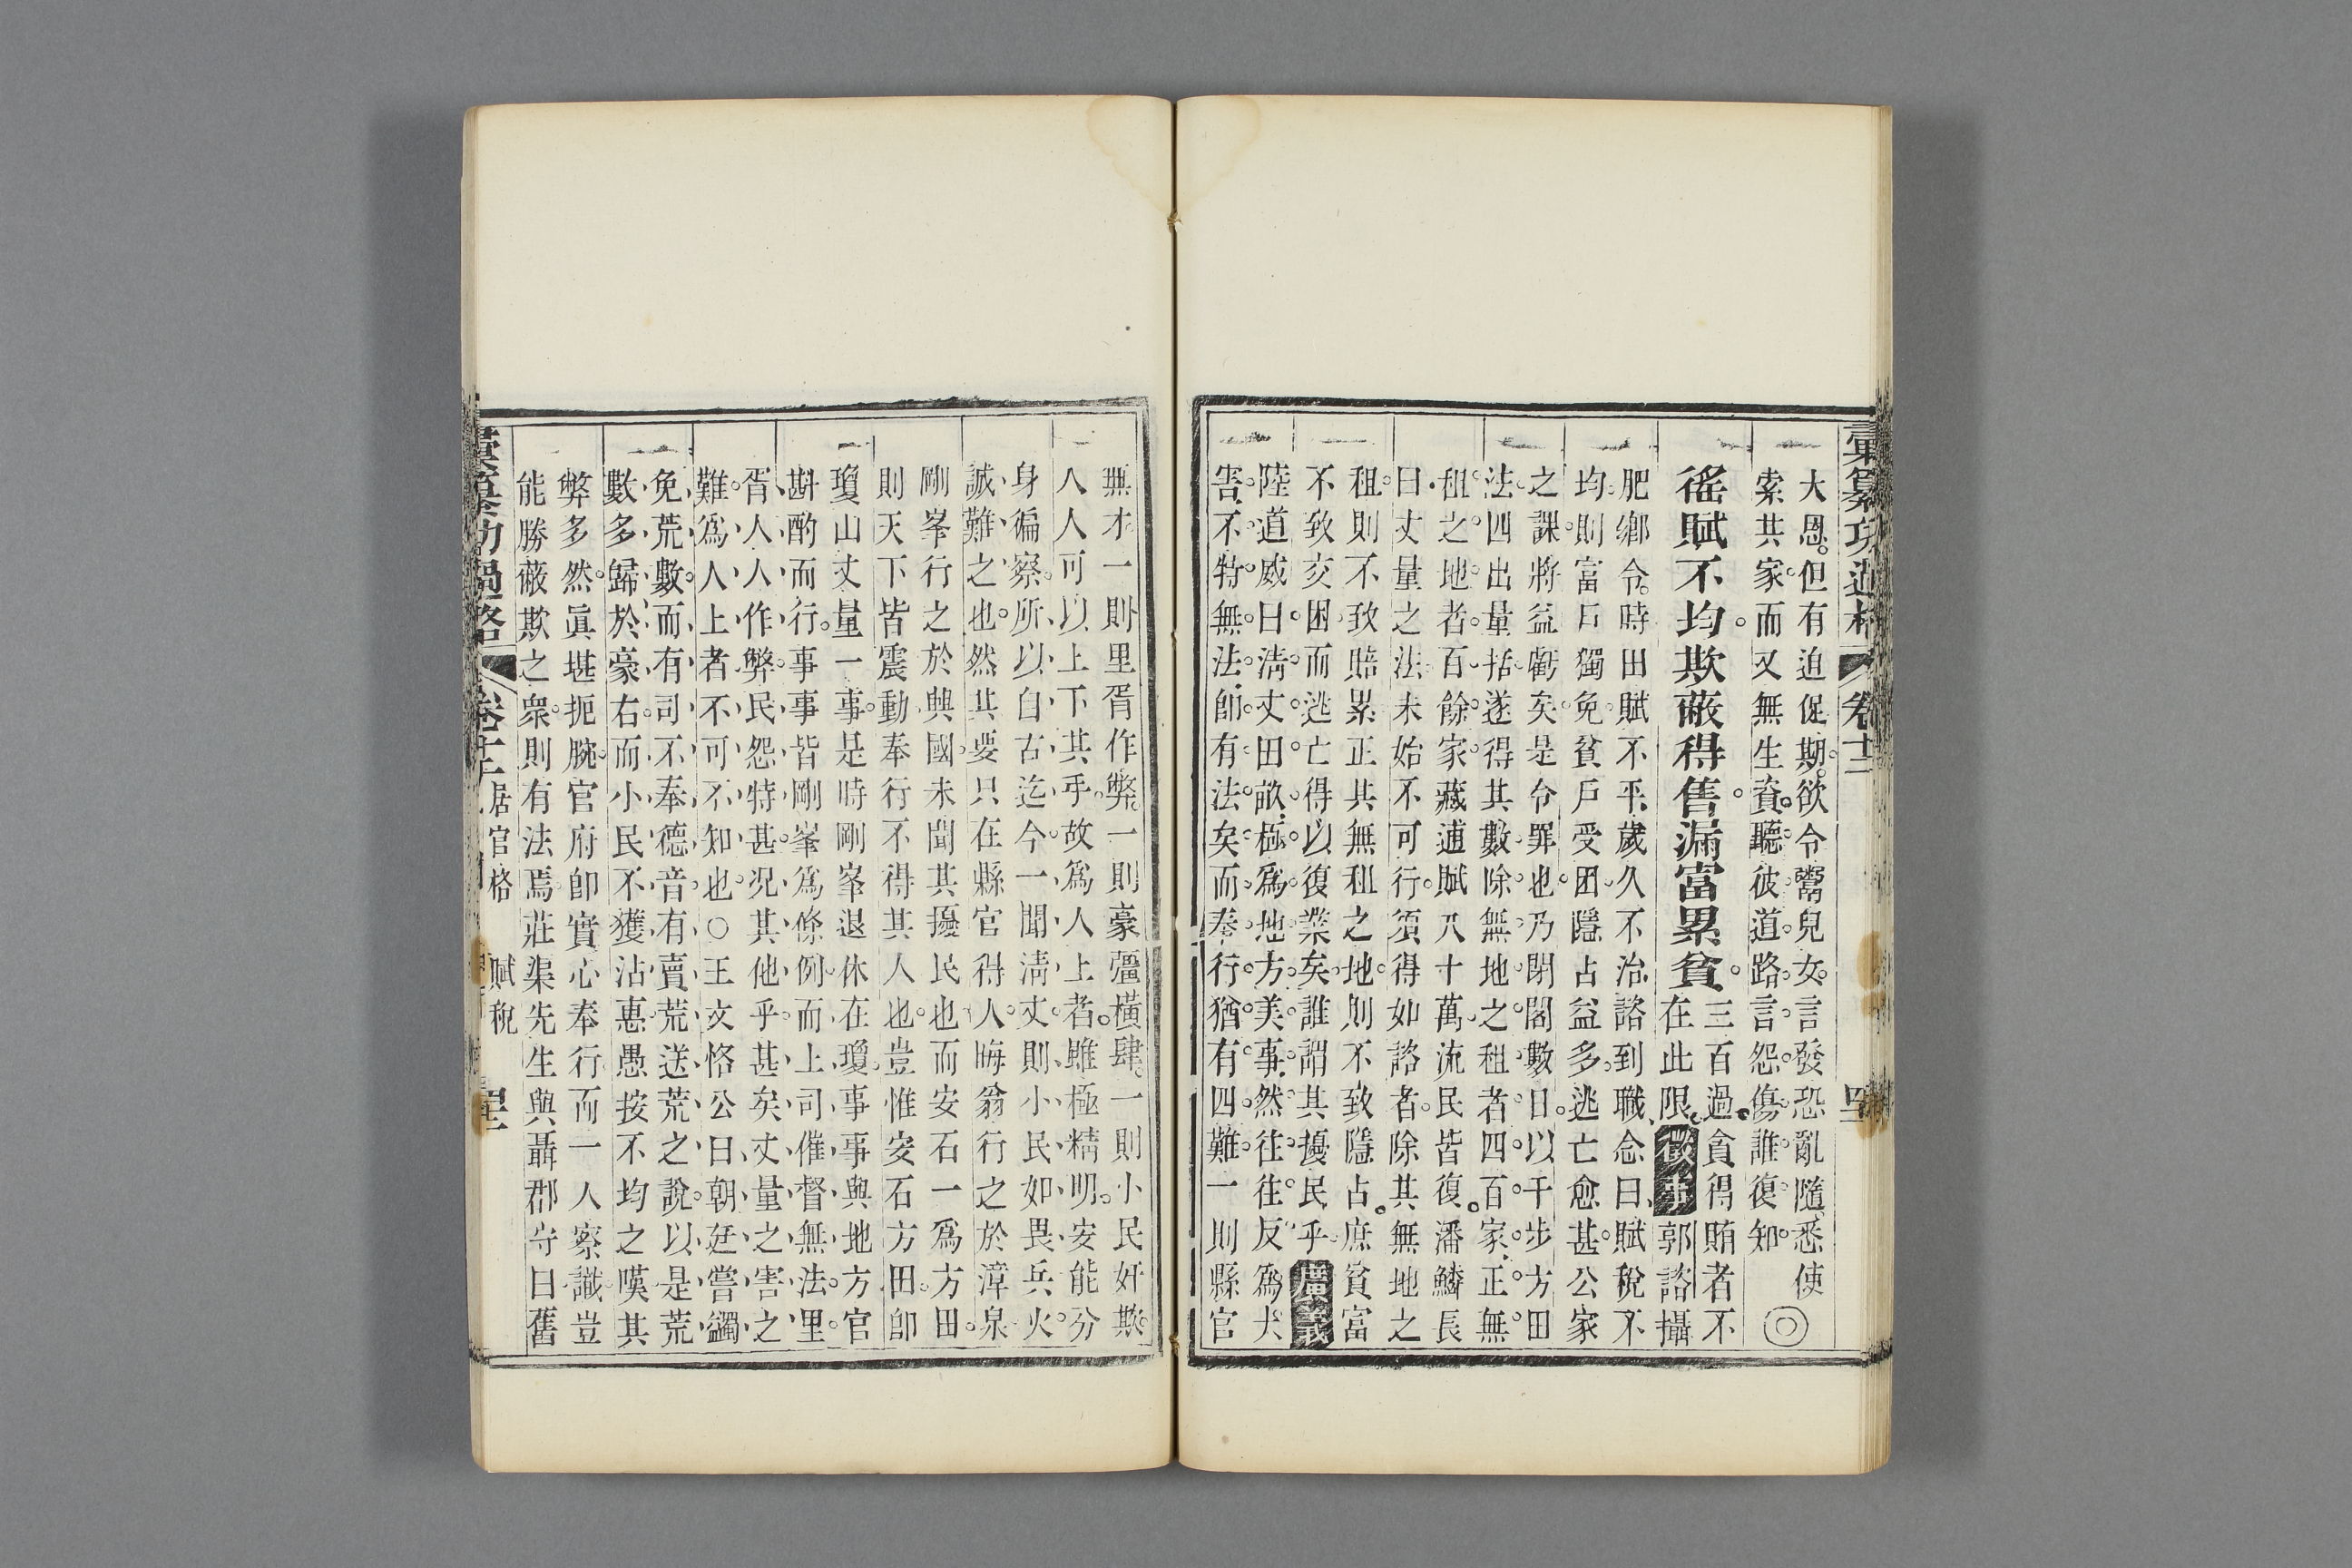 彙纂功過格
卷十二
大恩但有迫促期欲令鬻兒女言發恐亂隨悉使
索其家而又無生資聽彼道路言怨傷誰復知◎
徭賦不均欺蔽得售漏富累貧
三百過貪得賄者不
在此限徵事郭諮攝
肥鄉令時田賦不平歲久不治諮到職念曰賦稅不
均則富戶獨免貧戶受困隱占益多逃亡愈甚公家
之課將益虧矣是令罪也乃閉閣數日以千步方田
法四出量括遂得其數除無地之租者四百家正無
租之地者百餘家藏逋賦八十萬流民皆復潘鱗長
曰丈量之法未始不可行須得如諮者除其無地之
租則不致賠累正其無租之地則不致隱占庶貧富
不致交困而逃亡得以復業矣誰謂其擾民乎廣義
陸道威曰清丈田畝極為地方美事然往往反為大
害不特無法卽有法矣而奉行猶有四難一則縣官
無才一則里胥作弊一則豪彊橫肆一則小民奸欺
人人可以上下其手故為人上者雖極精明安能分
身徧察所以自古迄今一聞清丈則小民如畏兵火
誠難之也然其要只在縣官得人晦翁行之於漳泉
剛峯行之於興國未聞其擾民也而安石一為方田
則天下皆震動奉行不得其人也豈惟安石方田卽
瓊山丈量一事是時剛峯退休在瓊事事與地方官
斟酌而行事事皆剛峯為條例而上司催督無法里
胥人人作弊民怨特甚况其他乎甚矣丈量之害之
難為人上者不可不知也○王文恪公曰朝廷嘗蠲
免荒數而有司不奉德音有賣荒送荒之說以是荒
數多歸於豪右而小民不獲沾惠愚按不均之嘆其
弊多然眞堪扼腕官府卽實心奉行而一人察識豈
能勝蔽欺之衆則有法焉莊渠先生與聶郡守曰舊
彙纂功過格
卷十二
居官格
賦稅